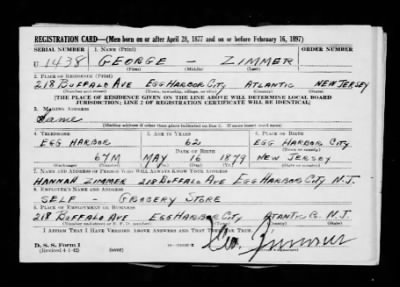 REGISTRATION CARD—(Men born on or after April 28, 1877 and on or before February 16, 1897)
SERIAL NUMBER 1. NAME (Print) ORDER NUMBER
U 1438 GEORGE - ZIMMER
2. PLACE OF RESIDENCE (Print)
218 BUFFALO AVE EGG HARBOR CITY ATLANTIC NEW JERSEY
[THE PLACE OF RESIDENCE GIVEN ON THE LINE ABOVE WILL DETERMINE LOCAL BOARD
JURISDICTION; LINE 2 OF REGISTRATION CERTIFICATE WILL BE IDENTICAL]
3. MAILING ADDRESS
Same
[Mailing address if other than place indicated on line 2. If same insert word same]
4. TELEPHONE 5. AGE IN YEARS 6. PLACE OF BIRTH
EGG HARBOR 62 EGG HARBOR CITY
DATE OF BIRTH
67M MAY 16 1879 NEW JERSEY
(Exchange) (Number) (Mo.) (Day) (Yr.) (State or country)
7. NAME AND ADDRESS OF PERSON WHO WILL ALWAYS KNOW YOUR ADDRESS
HANNAH ZIMMER 218 BUFFALO AVE EGG HARBOR CITY N.J.
8. EMPLOYER'S NAME AND ADDRESS
SELF - GROCERY STORE
9. PLACE OF EMPLOYMENT OR BUSINESS
218 BUFFALO AVE EGG HARBOR CITY ATLANTIC CO. N.J.
I AFFIRM THAT I HAVE VERIFIED ABOVE ANSWERS AND THAT THEY ARE TRUE.
D. S. S. Form 1
(Revised 4-1-42) (over)
Geo. Zimmer